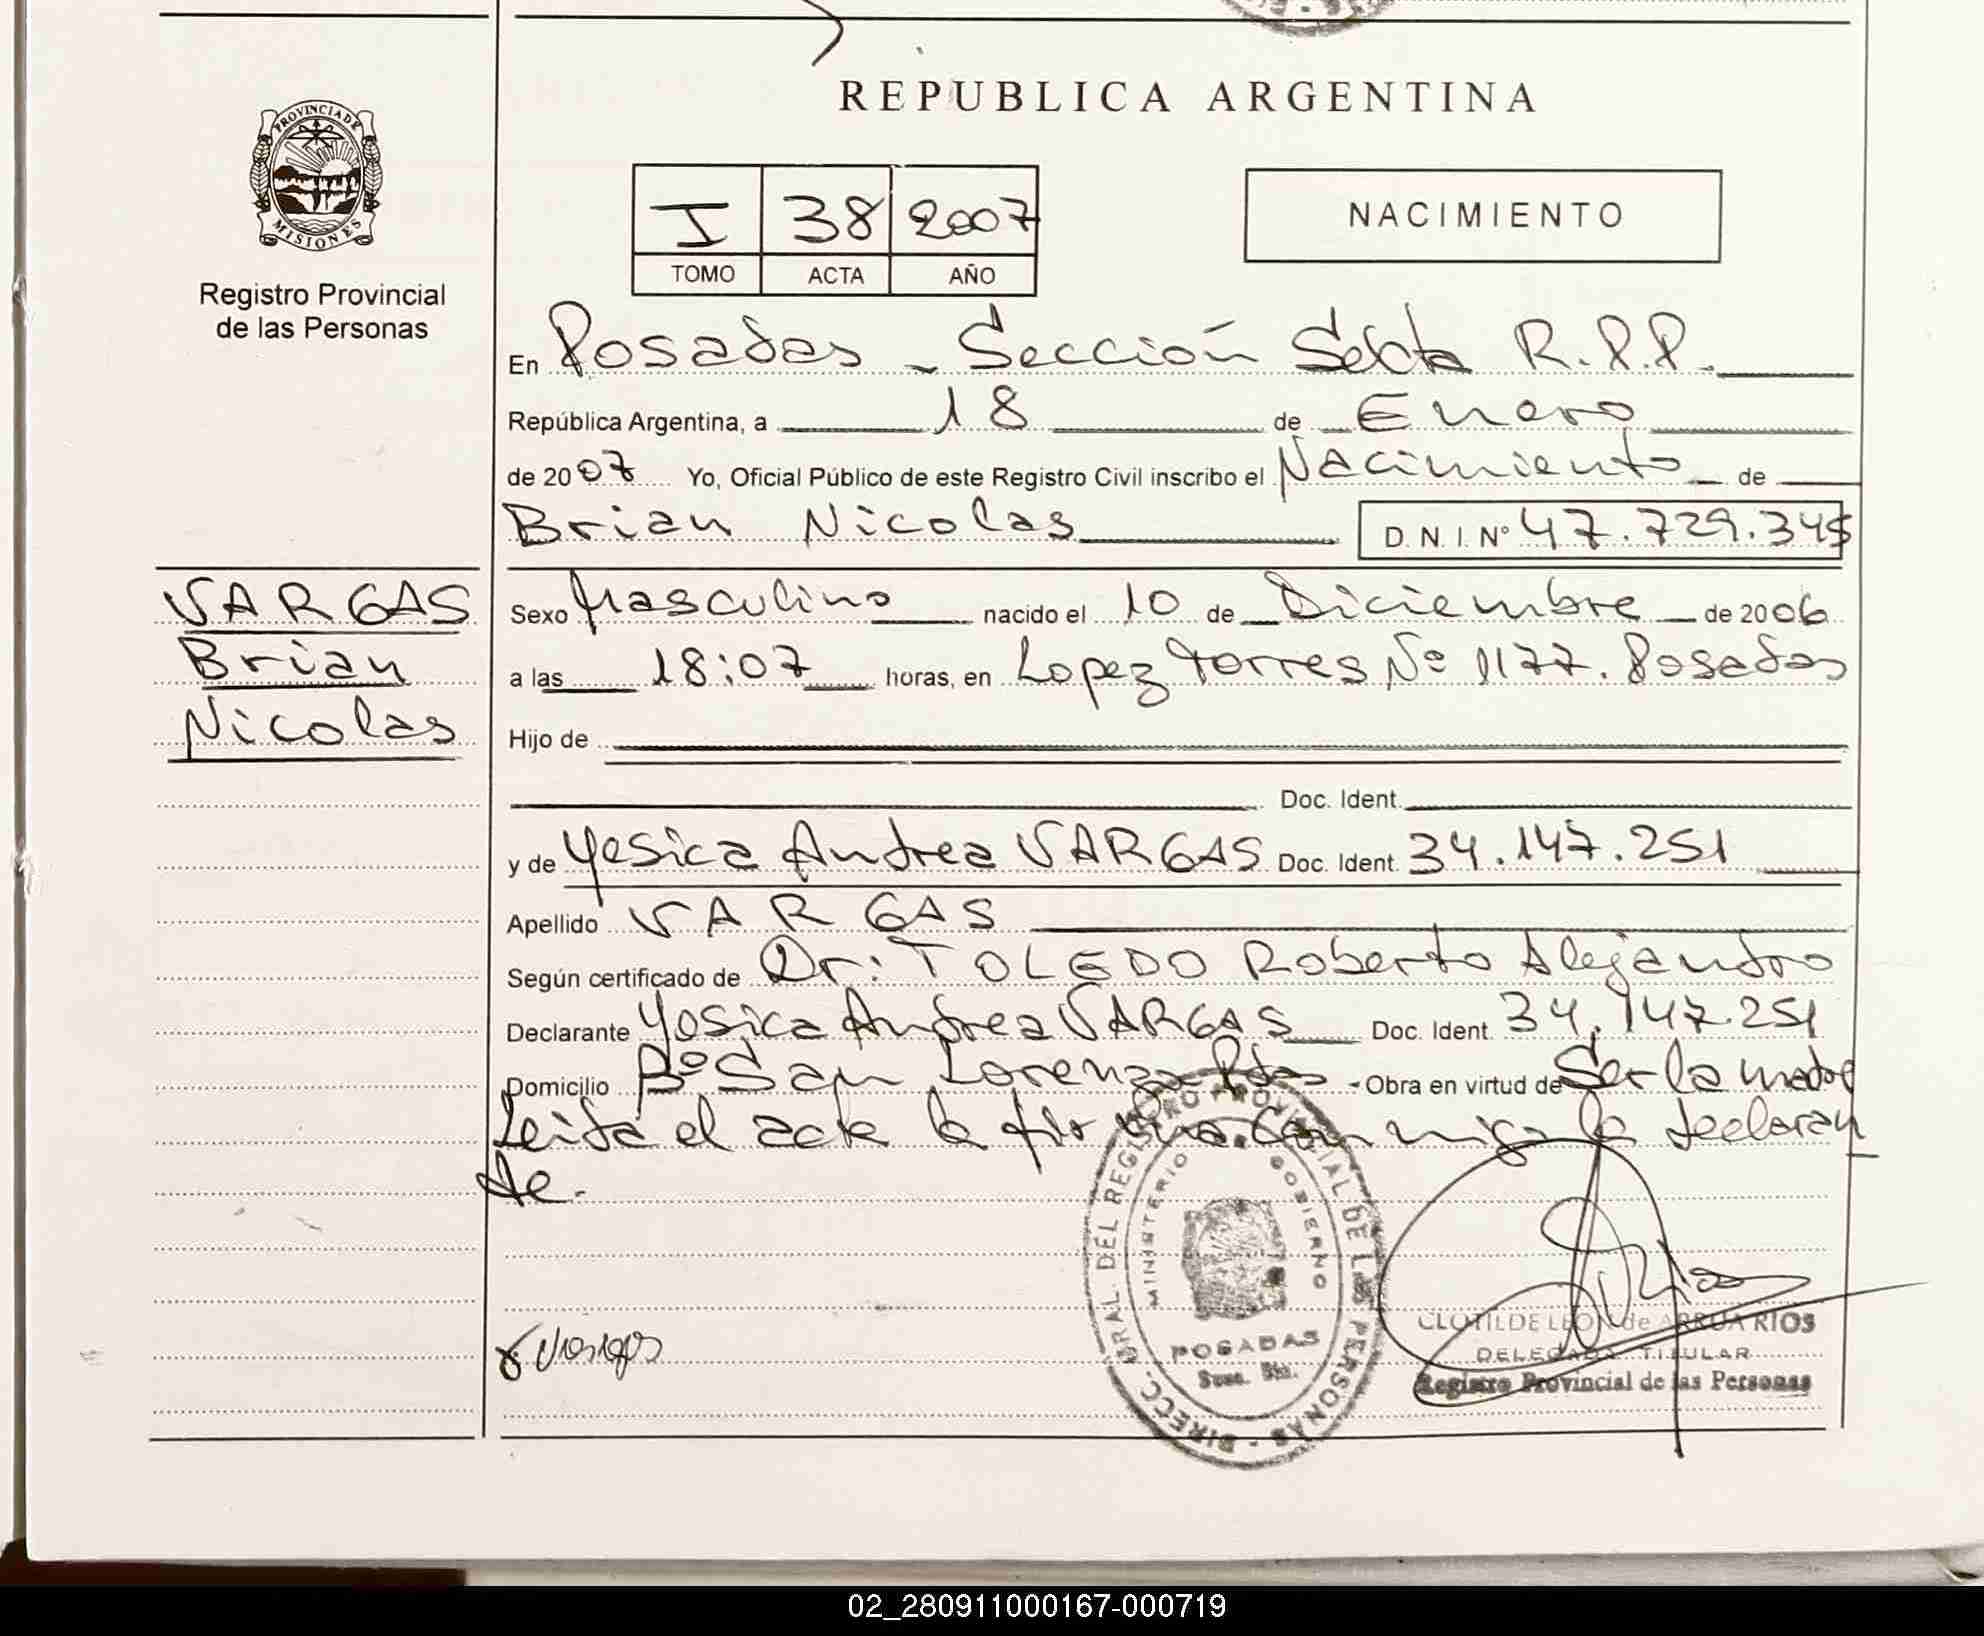 REPUBLICA ARGENTINA
PROVINCIA DE
MISIONES
Registro Provincial
de las Personas
I 38 2007
TOMO ACTA AÑO
NACIMIENTO
En Posadas - Sección Sexta R.P.P.
República Argentina, a 18 de Enero
de 2007 Yo, Oficial Público de este Registro Civil inscribo el Nacimiento de
Brian Nicolas D. N. I. Nº 47.729.345
VARGAS
Brian
Nicolas
Sexo Masculino nacido el 10 de Diciembre de 2006
a las 18:07 horas, en Lopez Torres Nº 1177. Posadas
Hijo de
Doc. Ident.
y de Yesica Andrea VARGAS Doc. Ident. 34.147.251
Apellido VARGAS
Según certificado de Dr: TOLEDO Roberto Alejandro
Declarante Yesica Andrea VARGAS Doc. Ident. 34.147.251
Domicilio Bº San Lorenzo Pdas - Obra en virtud de Ser la madre
Leida el acta la firma conmigo la declaran
te.
DIRECC. GRAL. DEL REGISTRO PROVINCIAL DE LAS PERSONAS
MINISTERIO GOBIERNO
POSADAS
x Vargas
CLOTILDE LEON de ARRUA RIOS
DELEGADA TITULAR
Registro Provincial de las Personas
02_280911000167-000719